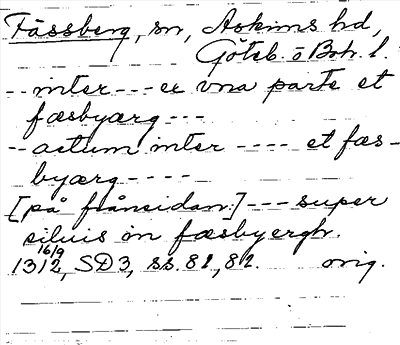 Fässberg, sn, Askims hd,
Göteb. o Boh. l.
-- inter --- ex vna parte et
fæsbyærg ---
-- actum inter ---- et fæs-
byærg ----
[på frånsidan] --- super
siluis in fæsbyergh.
16/9
1312, SD3, ss. 81, 82. orig.